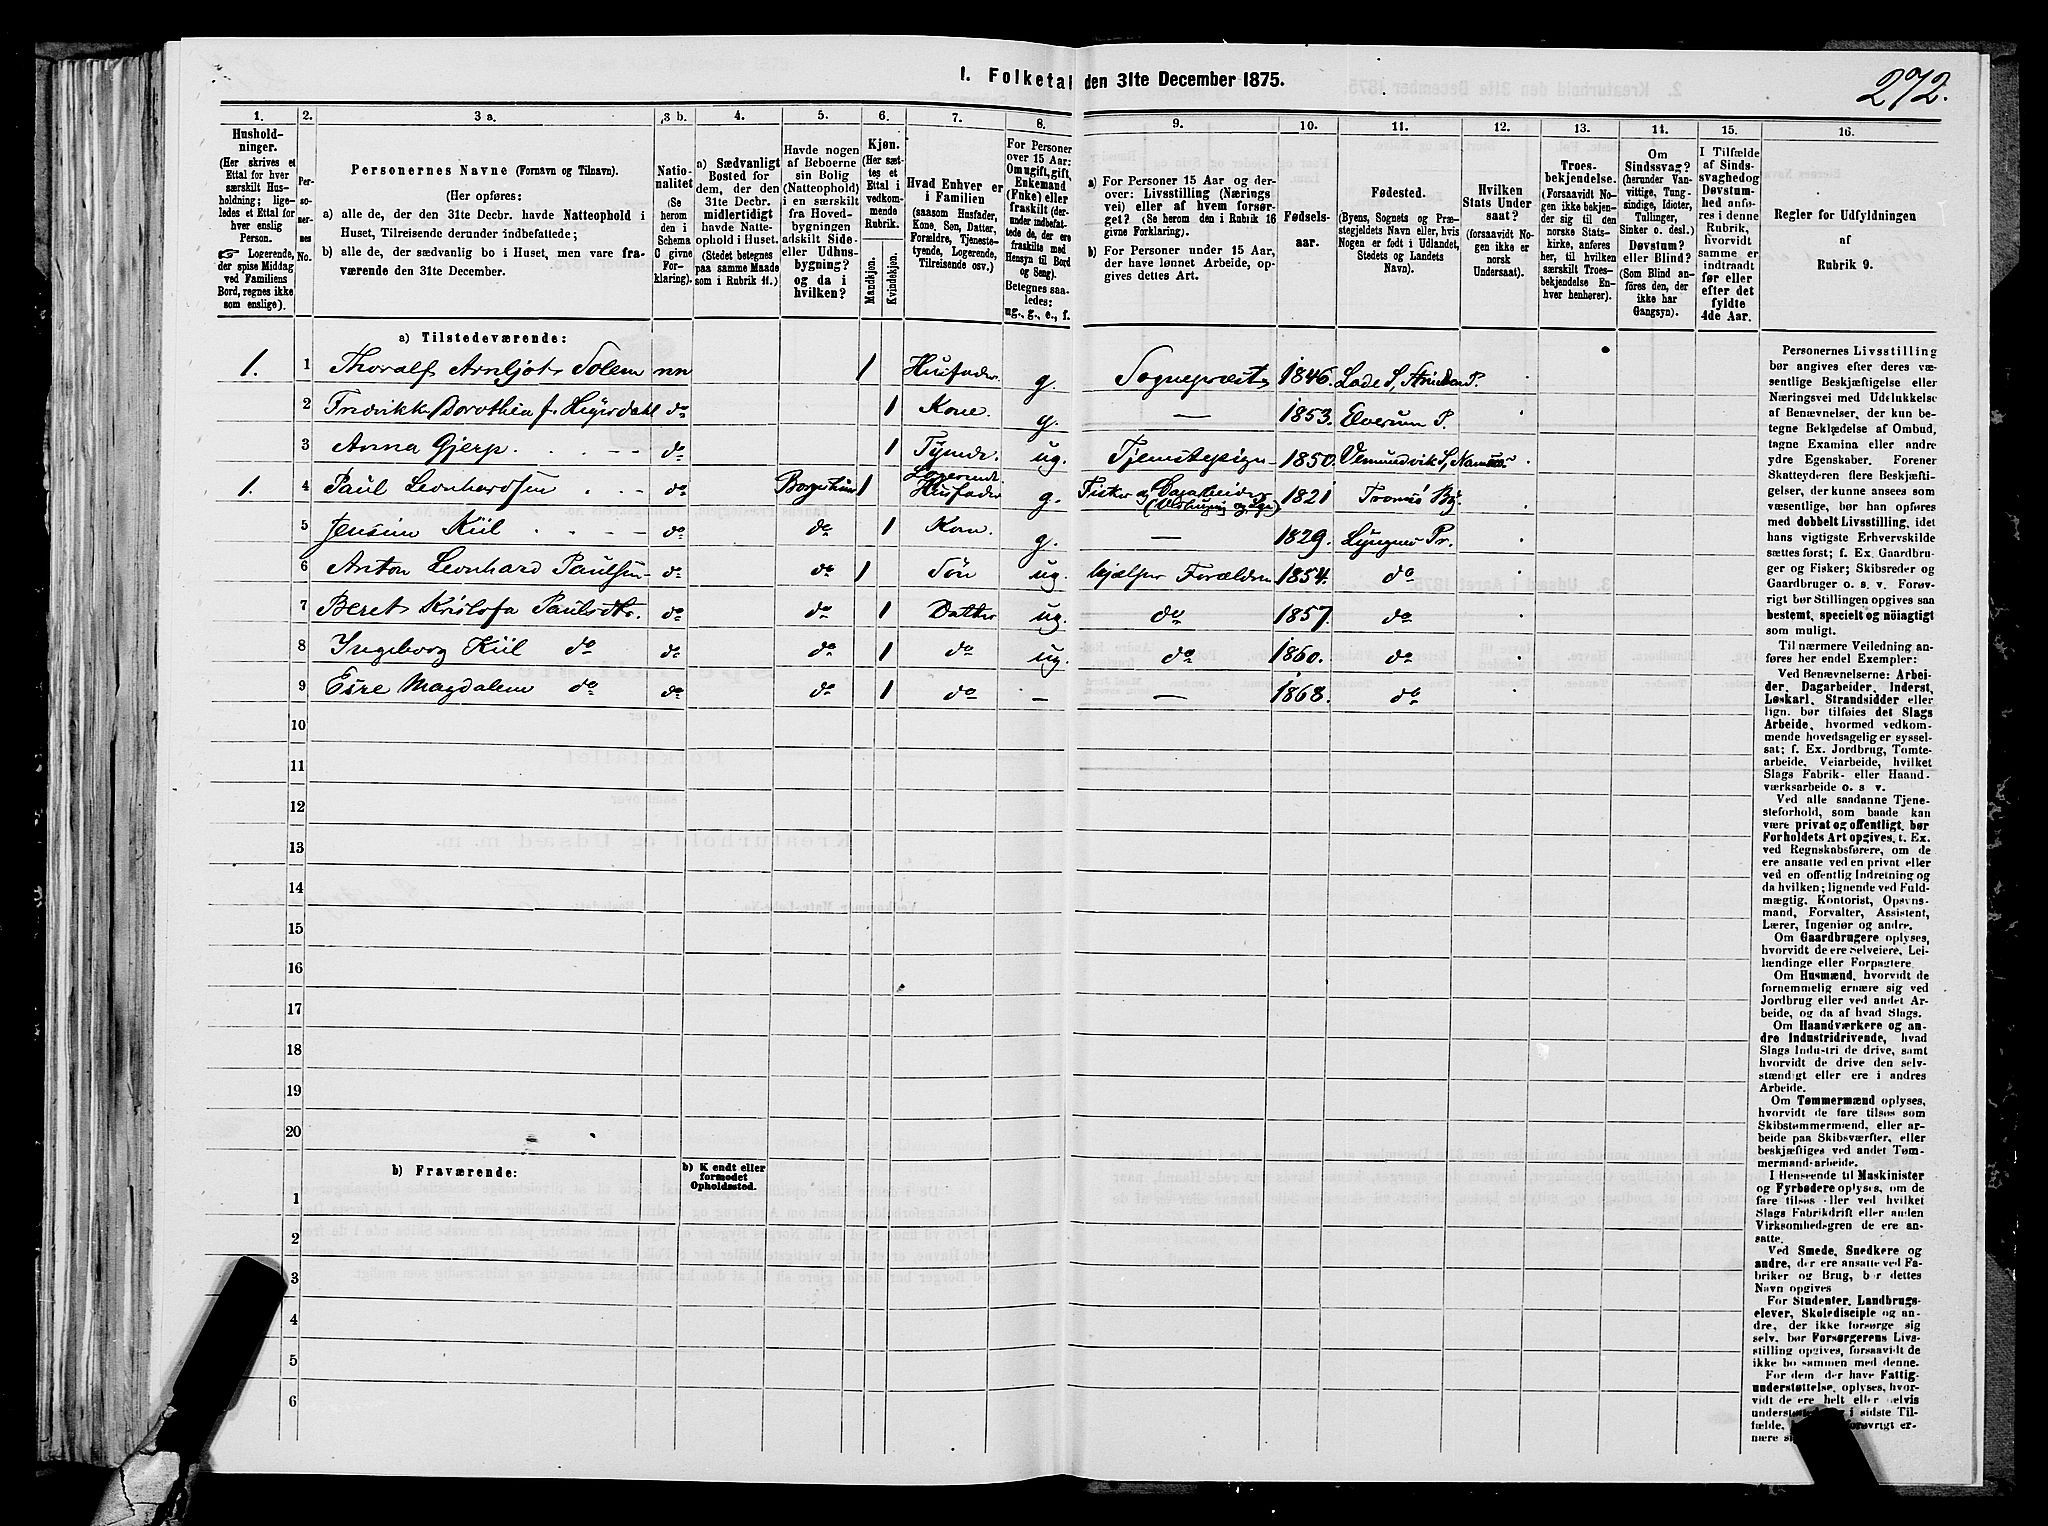 1. Folketal den 31te December 1875.
272.
1.
2.
3 a.
3 b.
4.
5.
6.
7.
8.
9.
10.
11.
12.
13.
14.
15.
16.
Hushold-
ninger.
(Her skrives et
Ettal for hver
særskilt Hus-
holdning; lige-
ledes et Ettal for
hver enslig
Person.
☞ Logerende,
der spise Middag
ved Familiens
Bord, regnes ikke
som enslige).
Per-
so-
ner-
nes
No.
Personernes Navne (Fornavn og Tilnavn).
(Her opføres:
a) alle de, der den 31te Decbr. havde Natteophold i
Huset, Tilreisende derunder indbefattede;
b) alle de, der sædvanlig bo i Huset, men vare fra-
værende den 31te December.
Natio-
nalitet
(Se
herom
den i
Schema
C givne
For-
klaring).
a) Sædvanligt
Bosted for
dem, der den
31te Decbr.
midlertidigt
havde Natte-
ophold i Huset.
(Stedet betegnes
paa samme Maade
som i Rubrik 11.)
Havde nogen
af Beboerne
sin Bolig
(Natteophold)
i en særskilt
fra Hoved-
bygningen
adskilt Side-
eller Udhus-
bygning?
og da i
hvilken?
Kjøn.
(Her sæt-
tes et
Ettal i
vedkom-
mende
Rubrik.
Mandkjøn.
Kvindekjøn.
Hvad Enhver er
i Familien
(saasom Husfader,
Kone, Søn, Datter,
Forældre, Tjeneste-
tyende, Logerende,
Tilreisende osv.)
For Personer
over 15 Aar:
Om ugift, gift,
Enkemand
(Enke) eller
fraskilt (der-
under indbefat-
tede de, der ere
fraskilte med
Hensyn til Bord
og Seng).
Betegnes saa-
ledes:
ug., g., e., f.
a) For Personer 15 Aar og der-
over: Livsstilling (Nærings-
vei) eller af hvem forsør-
get? (Se herom den i Rubrik 16
givne Forklaring).
b) For Personer under 15 Aar,
der have lønnet Arbeide, op-
gives dettes Art.
Fødsels-
aar.
Fødested.
(Byens, Sognets og Præ-
stegjeldets Navn eller, hvis
Nogen er født i Udlandet,
Stedets og Landets
Navn).
Hvilken
Stats Under
saat?
(forsaavidt No-
gen ikke er
norsk
Undersaat).
Troes-
bekjendelse.
(Forsaavidt No-
gen ikke bekjen-
der sig til den
norske Stats-
kirke, anføres
her, til hvilken
særskilt Troes-
bekjendelse En-
hver henhører).
Om
Sindssvag?
(herunder Van-
vittige, Tung-
sindige, Idioter,
Tullinger,
Sinker o. desl.)
Døvstum?
eller Blind?
(Som Blind an-
föres den, der
ikke har
Gangsyn).
I Tilfælde
af Sinds-
svaghed og
Døvstum-
hed anfø-
res i denne
Rubrik,
hvorvidt
samme er
indtraadt
før eller
efter det
fyldte
4de Aar.
Regler for Udfyldningen
af
Rubrik 9.
a) Tilstedeværende:
1. 1 Thoralf Arnljot Solem nn 1 Husfader g. Sogneprest 1846. Lade S, Strinden P.
2 Fredrikke Dorothea f. Heyerdahl do 1 Kone g. — 1853. Elverum P.
3 Anna Gjerp do 1 Tjende. ug. Tjenestepige 1850. Vemundvik S, Namsos
1. 4 Paul Leonhardsen do Borgestuen 1 Logerende Husfader g. Fisker og Dagarbeider 1821 Tromsø By.
5 Jensine Kiil do do 1 Kone g. — 1829. Lyngens Pr.
6 Anton Leonhard Paulsen do do 1 Søn ug. hjælper Forældrene 1854. do
7 Beret Kristofa Paulsdtr. do do 1 Datter ug. do 1857. do
8 Ingeborg Kiil do do do 1 do ug. do 1860. do
9 Esre Magdalene do do do 1 do — — 1868. do
10
11
12
13
14
15
16
17
18
19
20
b) Fraværende:
b) K endt eller
formodet
Opholdssted.
1
2
3
4
5
6
Personernes Livsstilling
bør angives efter deres væ-
sentlige Beskjæftigelse eller
Næringsvei med Udelukkelse
af Benævnelser, der kun be-
tegne Beklædelse af Ombud,
tagne Examina eller andre
ydre Egenskaber. Forener
Skatteyderen flere Beskjæfti-
gelser, der kunne ansees som
væsentlige, bør han opføres
med dobbelt Livsstilling, idet
hans vigtigste Erhvervskilde
sættes først; f. Ex. Gaardbru-
ger og Fisker; Skibsreder og
Gaardbruger o. s. v. Forøv-
rigt bør Stillingen opgives saa
bestemt, specielt og nöiagtigt
som muligt.
Til nærmere Veiledning an-
føres her endel Exempler:
Ved Benævnelserne: Arbei-
der, Dagarbeider, Inderst,
Løskarl, Strandsidder eller
lign. bør tilføies det Slags
Arbeide, hvormed vedkom-
mende hovedsagelig er syssel-
sat; f. Ex. Jordbrug, Tomte-
arbeide, Veiarbeide, hvilket
Slags Fabrik- eller Haand-
værksarbeide o. s v.
Ved alle saadanne Tjene-
steforhold, som baade kan
være privat og offentligt, bør
Forholdets Art opgives, t. Ex.
ved Regnskabsførere, om de
ere ansatte ved en privat eller
ved en offentlig Indretning og
da hvilken; lignende ved Fuld-
mægtig, Kontorist, Opsyns-
mand, Forvalter, Assistent,
Lærer, Ingeniør og andre.
Om Gaardbrugere oplyses,
hvorvidt de ere Selveiere, Lei-
lændinge eller Forpagtere.
Om Husmænd, hvorvidt de
fornemmelig ernære sig ved
Jordbrug eller ved andet Ar-
beide, og da af hvad Slags.
Om Haandværkere og an-
dre industridrivende, hvad
Slags Industri de drive, samt
hvorvidt de drive den selv-
stændigt eller ere i andres
Arbeide.
Om Tømmermænd oplyses,
hvorvidt de fare tilsøs som
Skibstømmermænd, eller ar-
beide paa Skibsværfter, eller
beskjæftiges ved andet Tøm-
mermand-arbeide.
I Henseende til Maskinister
og Fyrbødere oplyses, om de
fare tilsøs eller ved hvilket
Slags Fabrikdrift eller anden
Virksomhedsgren de ere an-
satte.
Ved Smede, Snedkere og
andre, der ere ansatte ved Fa-
briker og Brug, bør dettes
Navn opgives
For Studenter, Landbrugs-
elever, Skoledisciple og an-
dre, der ikke forsørge sig
selv, bør Forsørgerens Livs-
stilling opgives, forsaavidt de
ikke bo sammen med denne.
For dem, der have Fattig-
understøttelse, oplyses, hvor-
vidt de ere helt eller delvis
i sidste Til-
fælde,